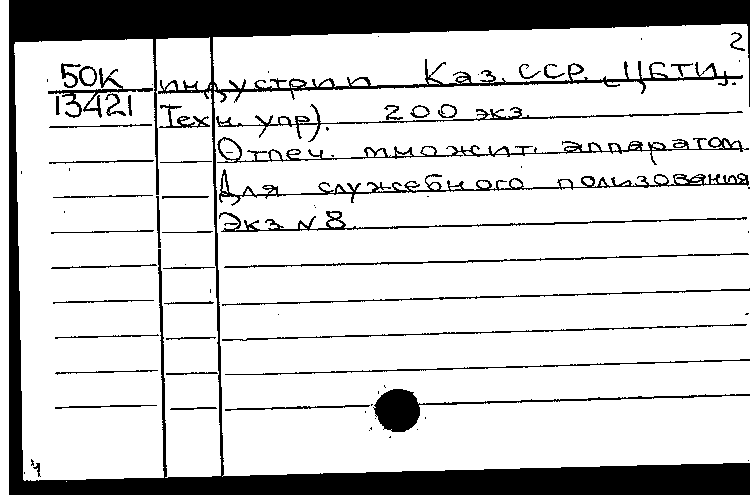 2
50К индустрии Каз. ССР. (ЦБТИ,
13421 Техн. упр). 200 экз.
Отпеч. множит. аппаратом
Для служебного пользования
Экз N 8
4